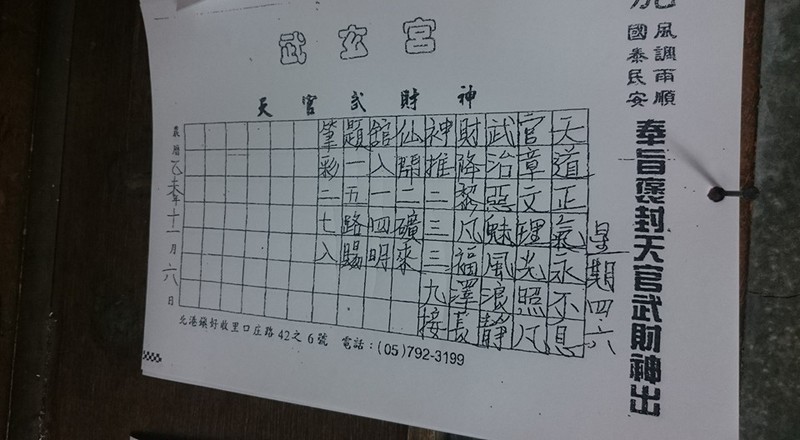 風調雨順
國泰民安
奉旨褒封天官武財神出
武玄宮
天官武財神
星期四六
天道正氣永不息
官章文理光照凡
武治惡魅風浪靜
財降黎凡福澤長
神推二三三九接
仙開二礦來
舘入一四明
題一五路賜
筆彩二七入
農曆乙未年十一月六日
北港鎮好收里口庄路42之6號 電話：(05)792-3199